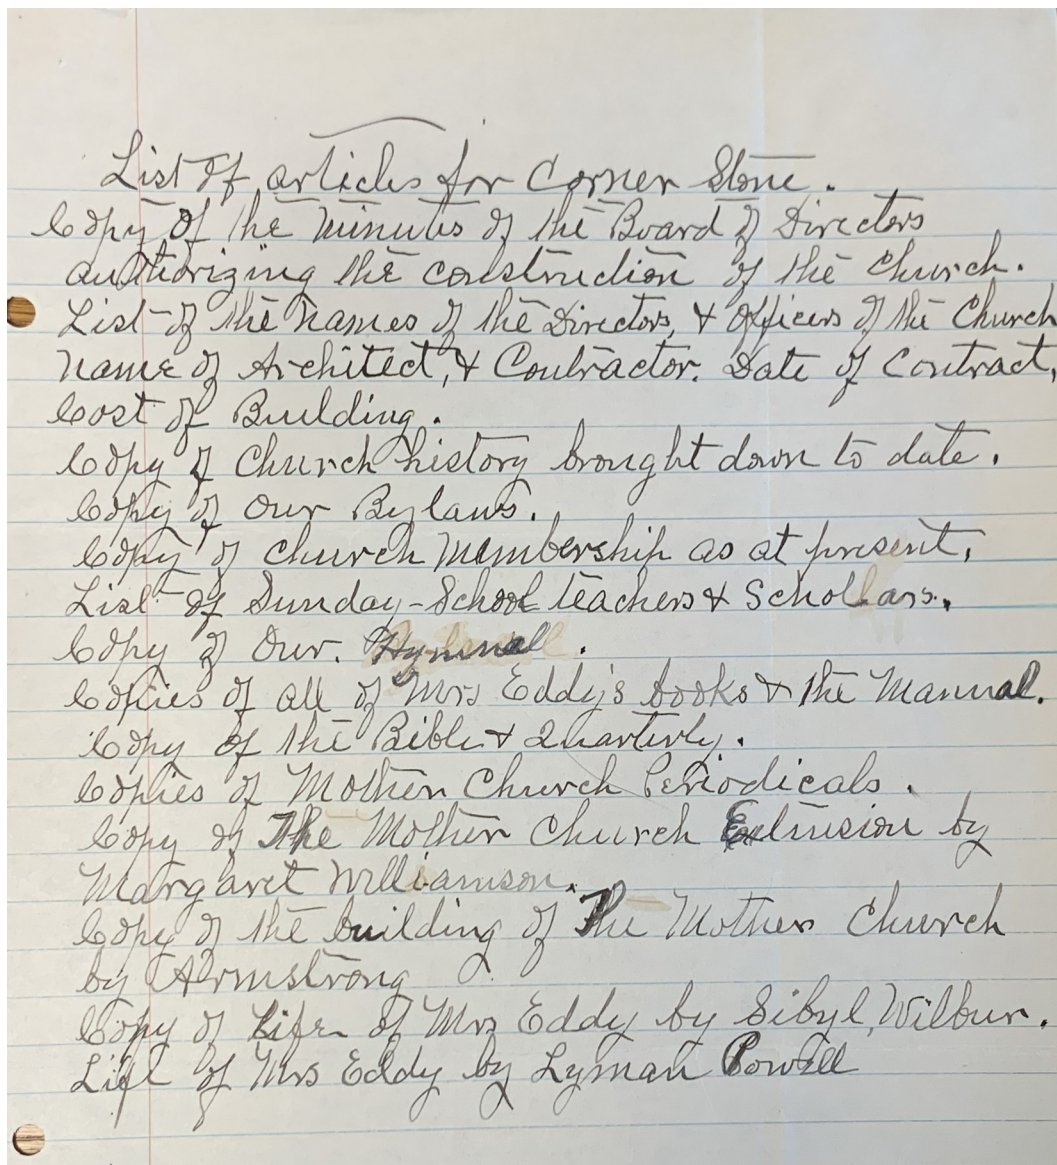 List of articles for Corner Stone.
Copy of the Minutes of the Board of Directors
authorizing the construction of the Church.
List of the Names of the Directors, & Officers of the Church
Name of Architect, & Contractor. Date of Contract,
Cost of Building.
Copy of Church history brought down to date.
Copy of Our Bylaws.
Copy of Church Membership as at present,
List of Sunday-School teachers & Schollars.
Copy of Our. Hymnal.
Copies of all of Mrs Eddy's books & the Manual.
Copy of the Bible & Quarterly.
Copies of Mother Church Periodicals.
Copy of The Mother Church Extension by
Margaret Williamson.
Copy of the building of The Mother Church
by Armstrong
Copy of Life of Mrs Eddy by Sibyl, Wilbur.
Life of Mrs Eddy by Lyman Powell